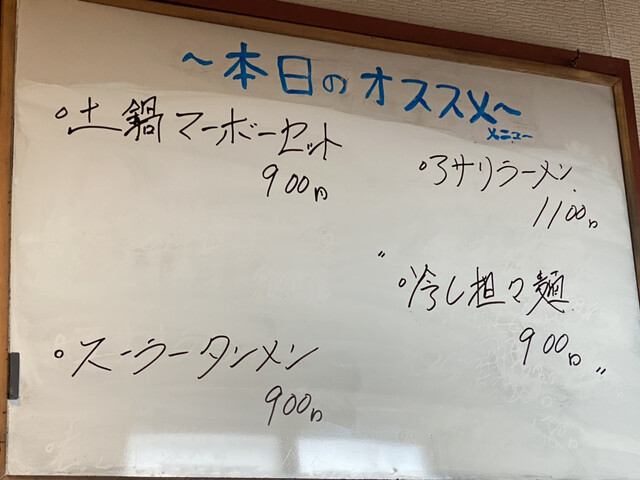 ～本日のオススメ～
メニュー
○土鍋マーボーセット
900円
○アサリラーメン
1100円
"○冷し担々麺
900円"
○スーラータンメン
900円